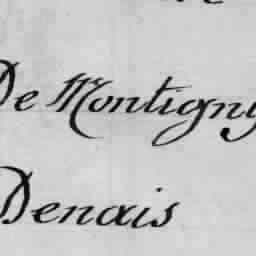 De Montigny
Denais